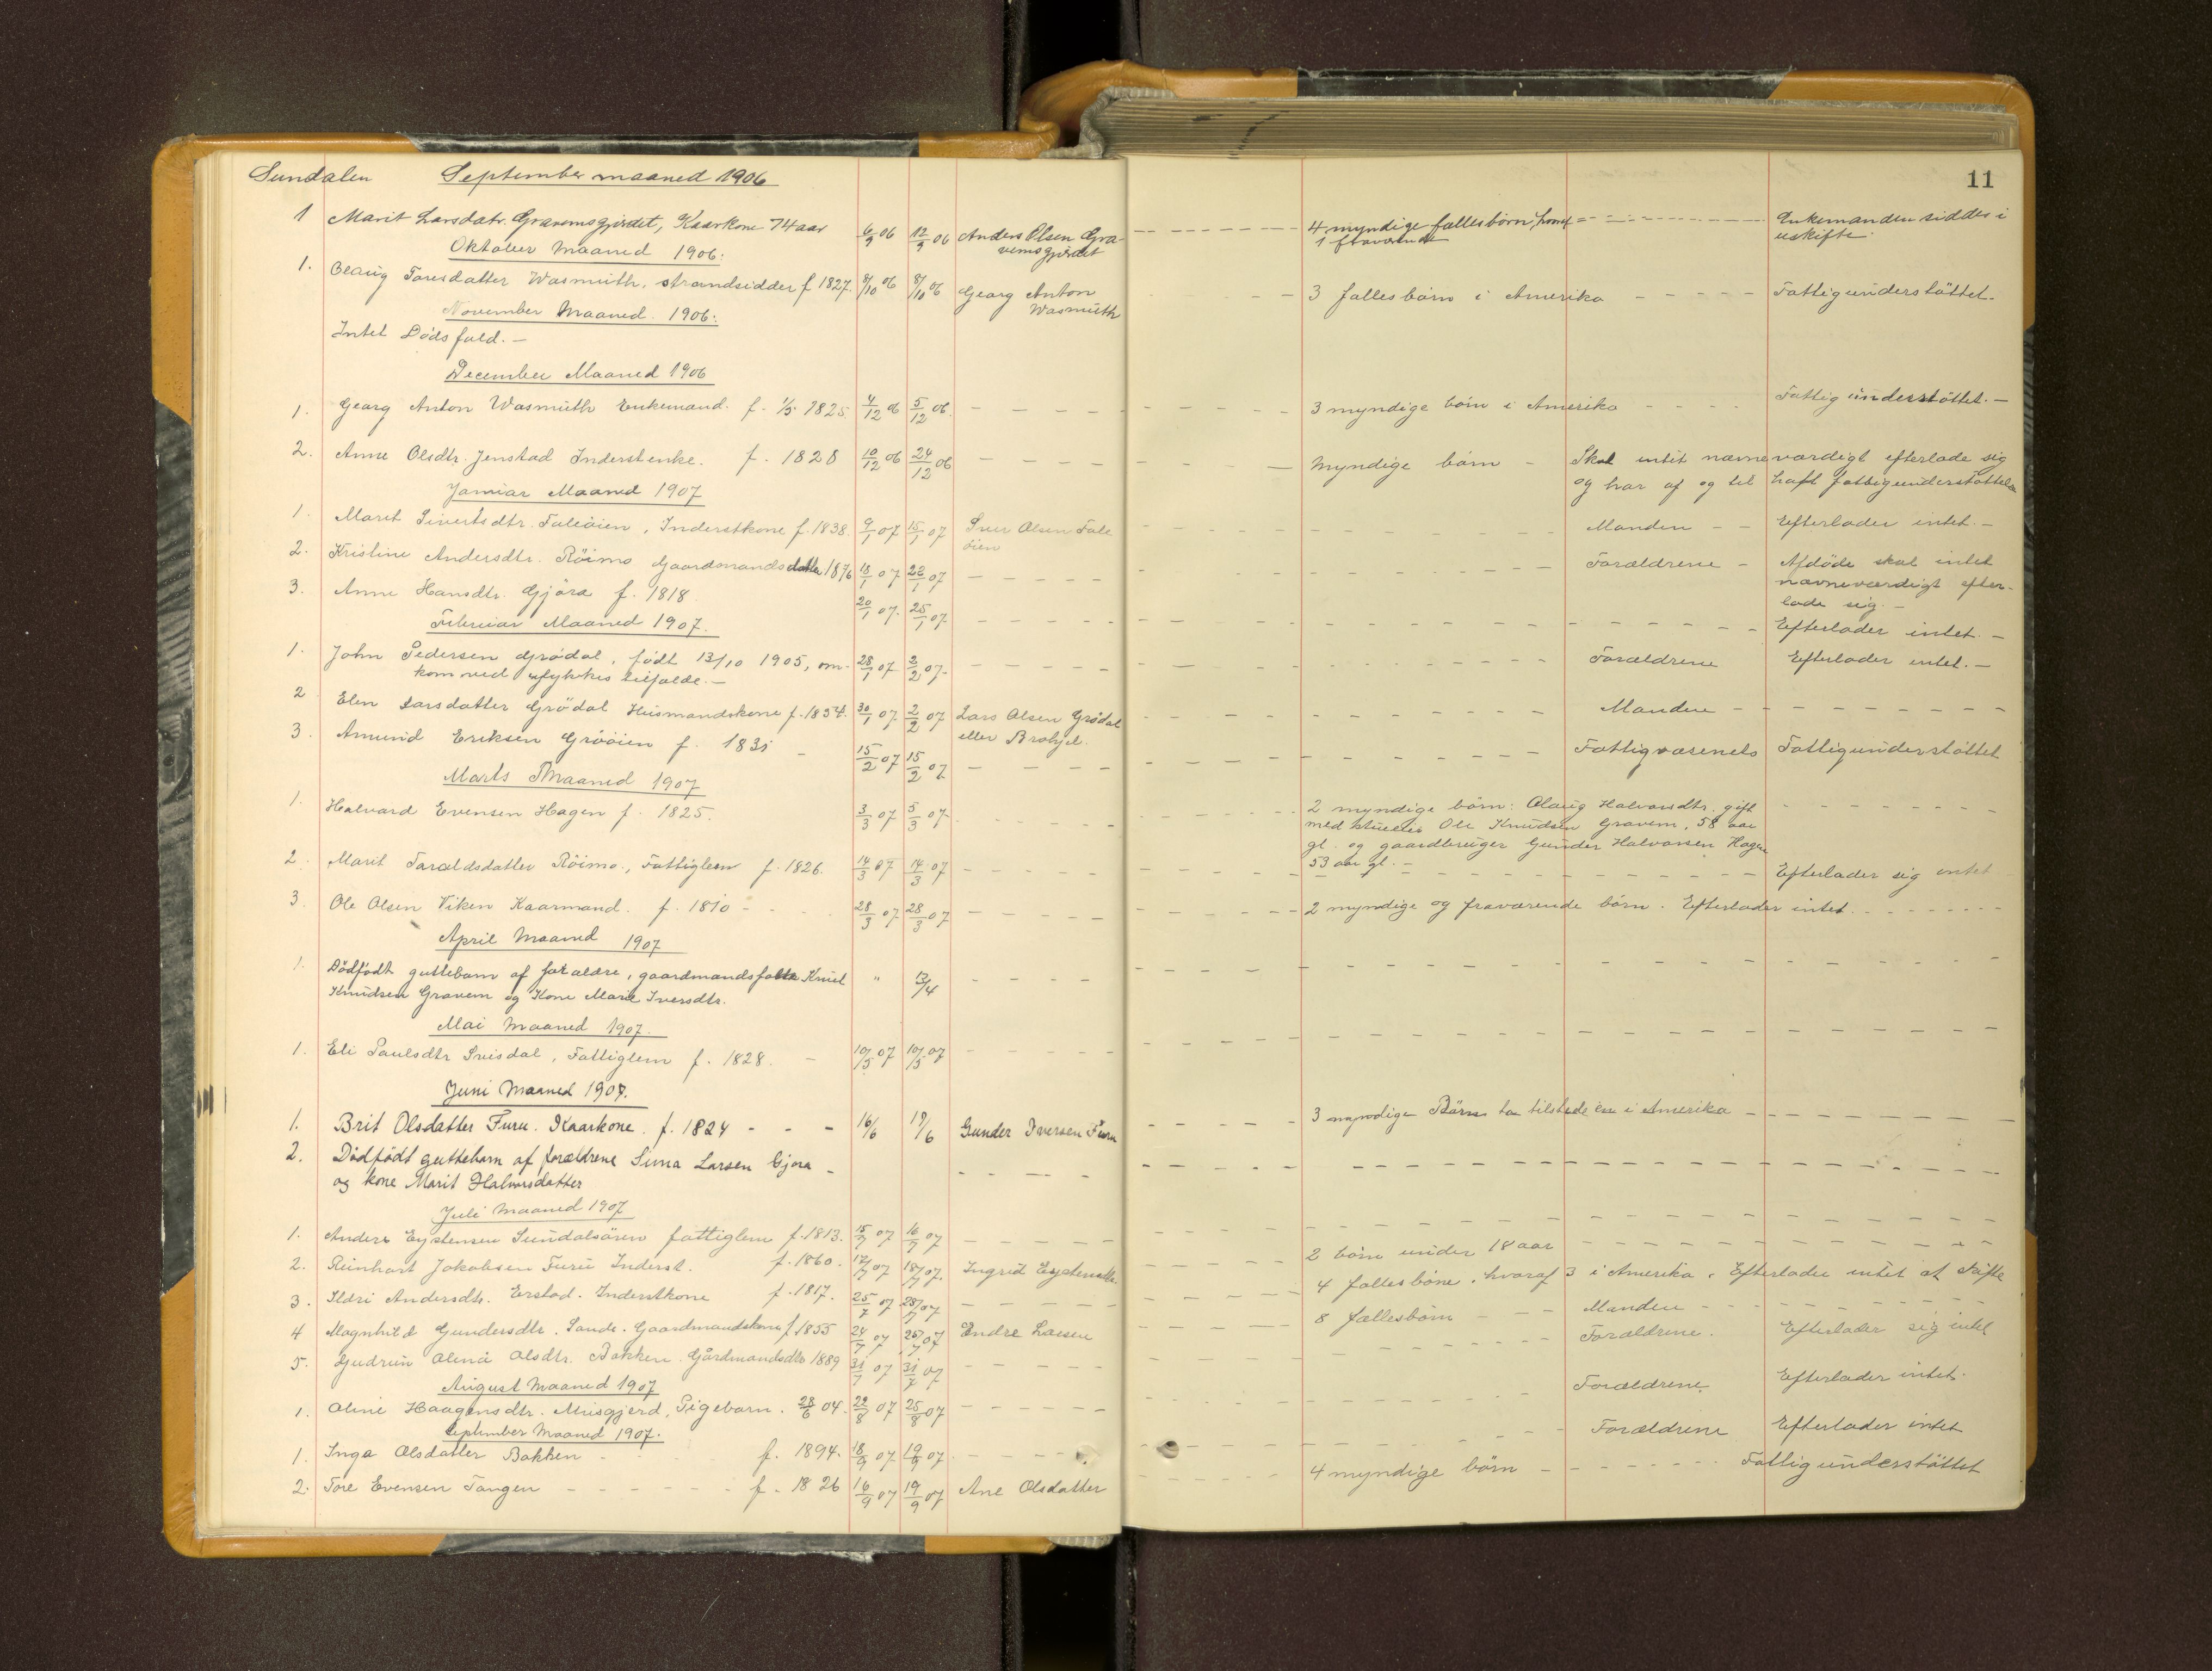 11
Sundalen September maaned 1906
1 Marit Larsdatr. Gravemsgjærdet, Kaarkone 74 aar 6/9 06 12/9 06 Anders Olsen Gra- 4 myndige fællesbörn, Enkemanden sidder i
vemsgjærdet 1 fraværende uskifte
Oktober Maaned 1906:
1. Olaug Toresdatter Wasmuth, strandsidder f 1827. 8/10 06 8/10 06 Georg Anton 3 fællesbörn i Amerika Fattigunderstöttet.
Wasmuth
November Maaned 1906:
Intet Dödsfald. —
December Maaned 1906
1. Georg Anton Wasmuth Enkemand. f. 1/5 1825 4/12 06 5/12 06. 3 myndige börn i Amerika Fattigunderstöttet. —
2. Anne Olsdtr. Jenstad Inderstenke. f. 1828 10/12 06 24/12 06 Myndige börn Skal intet nævneværdigt efterlade sig
og har af og til haft fattigunderstöttelse
Januar Maaned 1907
1. Marit Sivertsdtr. Faleöien, Inderstkone f. 1838. 9/1 07 15/1 07 Iver Olsen Fale Manden Efterlader intet. —
öien
2. Kristine Andersdtr. Röimo Gaardmandsdatter 1876 18/1 07 22/1 07 Forældrene Afdöde skal intet
nævneværdigt efter-
lade sig. —
3. Anne Hansdtr. Gjöra f. 1818 20/1 07. 25/1 07. Efterlader intet. —
Februar Maaned 1907.
1. John Pedersen Grödal, födt 13/10 1905, om- 28/1 07 2/2 07. Forældrene Efterlader intet. —
kom ved ulykkestilfælde. —
2 Elen Larsdatter Grödal Husmandskone f. 1834. 30/1 07 2/2 07 Lars Olsen Grödal Manden
eller Brohjel.
3. Amund Eriksen Grööien f. 1831 15/2 07 15/2 07 Fattigvæsenets Fattigunderstöttet
Marts Maaned 1907
1. Halvard Evensen Hagen f. 1825. 3/3 07 5/3 07. 2 myndige börn: Olaug Halvorsdtr. gift
med Ole Knudsen Gravem, 58 aar
gl. og gaardbruger Gunder Halvorsen Hagen
53 aar gl. —
2. Marit Taraldsdatter Röimo, Fattiglem f. 1826. 14/3 07 14/3 07 Efterlader sig intet
3. Ole Olsen Viken Kaarmand. f. 1810 28/3 07 28/3 07 2 myndige og fraværende börn. Efterlader intet.
April Maaned 1907
1. Dödfödt guttebarn af forældre, gaardmandsfolk Knut " 13/4
Knudsen Gravem og Kone Marit Iversdtr.
Mai Maaned 1907.
1. Eli Paulsdtr Snisdal, Fattiglem f. 1828. 10/5 07 10/5 07
Juni Maaned 1907.
1. Brit Olsdatter Furu. Kaarkone. f. 1824 16/6 19/6 Gunder Iversen Furu 3 myndige Börn to tilstede en i Amerika
2. Dödfödt guttebarn af forældrene Larsen Gjöra
og kone Marit Halvorsdatter
Juli Maaned 1907
1. Anders Eystensen Sundalsören fattiglem f. 1813. 15/7 07 16/7 07
2. Reinhart Jakobsen Furu Inderst. f. 1860. 17/7 07 18/7 07. Ingrid Eystensdtr. 2 börn under 18 aar
3. Ildri Andersdtr. Erstad. Inderstkone f. 1817. 25/7 07 28/7 07 4 fællesbörn, hvoraf 3 i Amerika. Efterlader intet at skifte
4 Magnhild Gundersdtr. Sande. Gaardmandskone f. 1855 24/7 07 25/7 07 Endre Larsen 8 fællesbörn Manden
5. Gudrun Olina Olsdtr. Bakken. Gårdmandsdtr 1889 31/7 07 31/7 07 Forældrene. Efterlader sig intet
August Maaned 1907
1. Oline Haagensdtr. Musgjerd, Pigebarn. 28/6 04. 22/8 07 25/8 07 Forældrene Efterlader intet.
September Maaned 1907.
1. Inga Olsdatter Bakken f. 1894. 18/9 07 19/9 07. Forældrene Efterlader intet
2. Tore Evensen Tangen f. 1826 16/9 07 19/9 07 Ane Olsdatter 4 myndige börn Fattigunderstöttet